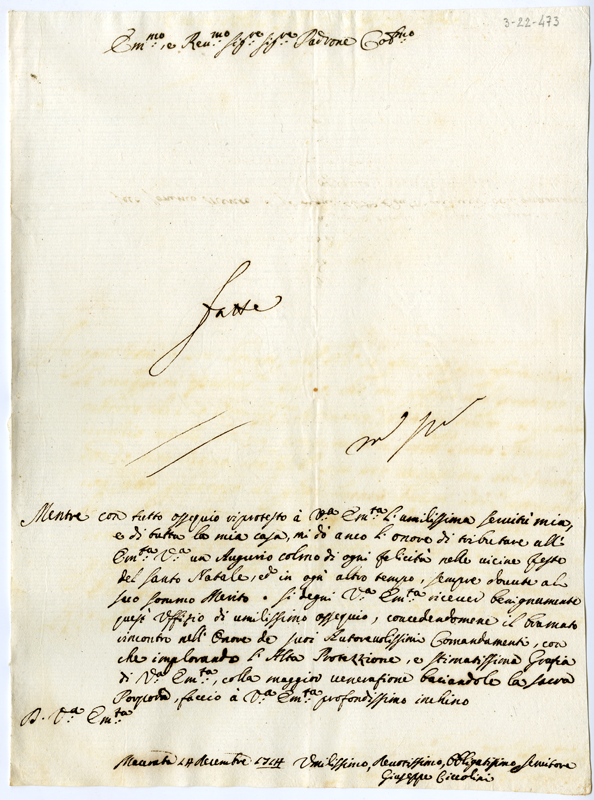 3-22-473
Em.mo, e Rev.mo Sig.re Sig.re Padrone Col.mo
fatte
Mentre con tutto ossequio riprotesto à V.a Em.ta l'umilissima servitù mia,
e di tutta la mia casa, mi dò anco l'onore di tributare all'
Em.ta V.a un Augurio colmo di ogni felicità nelle vicine feste
del Santo Natale, ed in ogni altro tempo, sempre dovute al
suo sommo Merito. Si degni V.a Em.ta ricever benignamente
quest'Uffizio di umilissimo ossequio, concedendomene il bramato
rincontro nell'Onore de suoi Autorevolissimi Comandamenti, con
che implorando l'Alta Protezzione, e stimatissima Grazia
di V.a Em.ta, colla maggior venerazione baciandole la sacra
Porpora, faccio à V.a Em.ta profondissimo inchino
D. V.a Em.ta
Macerata 14 decembre 1714 Umilissimo, devotissimo, Obligatissimo servitore
Giuseppe Ciccolini